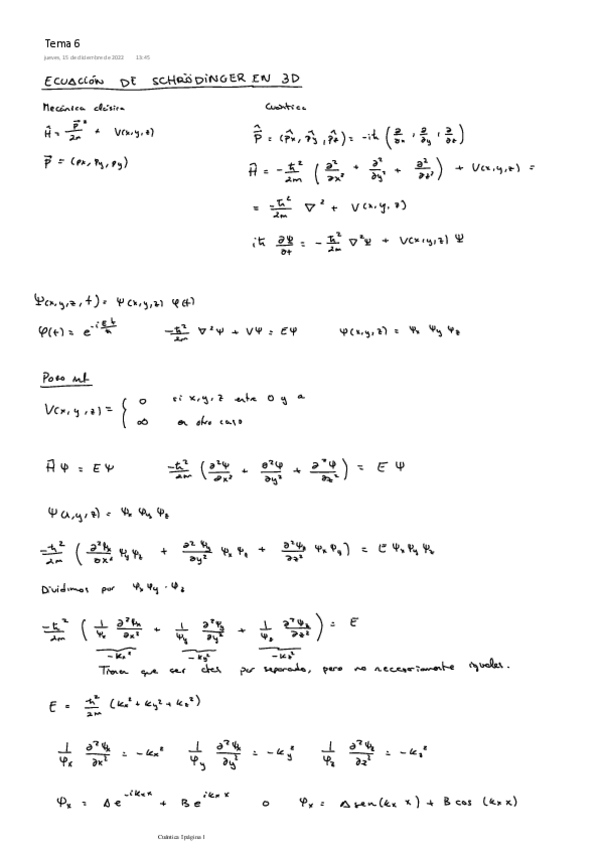 Tema 6
jueves, 15 de diciembre de 2022 13:45
ECUACIÓN DE SCHRÖDINGER EN 3D
Mecánica clásica Cuántica
Ĥ = p⃗²/2m + V(x,y,z) P̂ = (p̂x, p̂y, p̂z) = -iħ (∂/∂x, ∂/∂y, ∂/∂z)
p⃗ = (px, py, py) Ĥ = -ħ²/2m (∂²/∂x² + ∂²/∂y² + ∂²/∂z²) + V(x,y,z) =
= -ħ²/2m ∇² + V(x,y,z)
iħ ∂Ψ/∂t = -ħ²/2m ∇²Ψ + V(x,y,z) Ψ
Ψ(x,y,z,t) = Ψ(x,y,z) φ(t)
φ(t) = e^(-iEt/ħ) -ħ²/2m ∇²Ψ + VΨ = EΨ Ψ(x,y,z) = Ψx Ψy Ψz
Pozo inf
V(x,y,z) = { 0 si x,y,z entre 0 y a
∞ en otro caso
Ĥ Ψ = E Ψ -ħ²/2m (∂²Ψ/∂x² + ∂²Ψ/∂y² + ∂²Ψ/∂z²) = E Ψ
Ψ(x,y,z) = Ψx Ψy Ψz
-ħ²/2m (∂²Ψx/∂x² Ψy Ψz + ∂²Ψy/∂y² Ψx Ψz + ∂²Ψz/∂z² Ψx Ψy) = E Ψx Ψy Ψz
Dividimos por Ψx Ψy · Ψz
-ħ²/2m (1/Ψx ∂²Ψx/∂x² + 1/Ψy ∂²Ψy/∂y² + 1/Ψz ∂²Ψz/∂z²) = E
-kx² -ky² -kz²
Tienen que ser ctes por separado, pero no necesariamente iguales.
E = ħ²/2m (kx² + ky² + kz²)
1/Ψx ∂²Ψx/∂x² = -kx² 1/Ψy ∂²Ψy/∂y² = -ky² 1/Ψz ∂²Ψz/∂z² = -kz²
Ψx = A e^(-ikx x) + B e^(ikx x) o Ψx = A sen(kx x) + B cos (kx x)
Cuántica I página 1